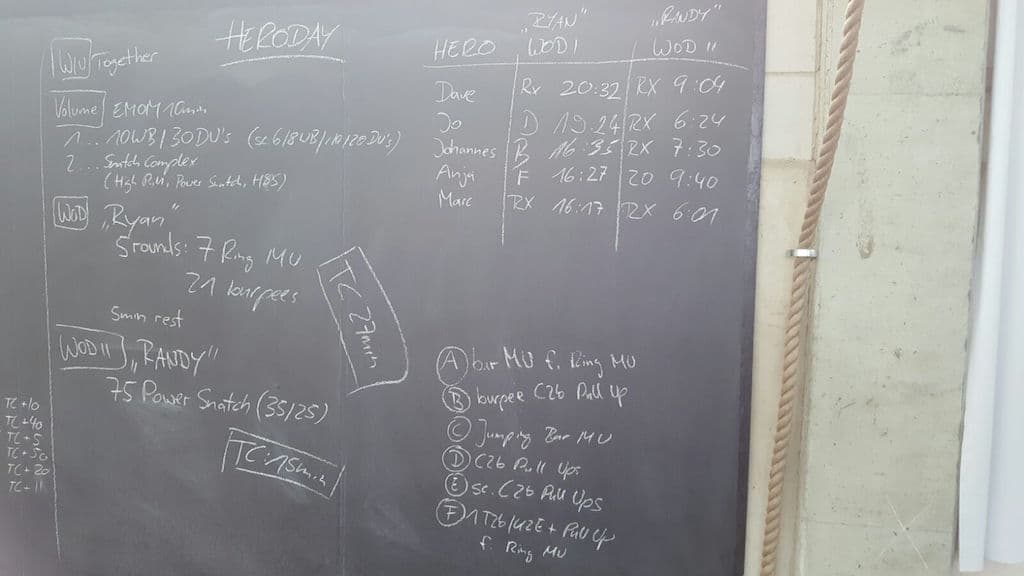 HERODAY
W/U Together
Volume EMOM 10min
1... 10WB/30DU's (sc 6/8WB/ /20DU's)
2... Snatch Complex
(High Pull, Power Snatch, HBS)
WOD „Ryan"
5 rounds: 7 Ring MU
21 burpees
TC 27min
5min rest
WOD II „RANDY"
75 Power Snatch (35/25)
TC: 15min
TC +10
TC +40
TC + 5
TC + 50
TC + 20
TC + 11
„RYAN" „RANDY"
HERO WOD I WOD II
Dave Rx 20:32 RX 9:04
Jo D 19:24 RX 6:24
Johannes B 16:35 RX 7:30
Anja F 16:27 20 9:40
Marc RX 16:17 RX 6:01
A bar MU f. Ring MU
B burpee C2b Pull Up
C Jumping Bar MU
D C2b Pull Ups
E sc. C2b Pull Ups
F 1 T2b/K2E + Pull Up
f. Ring MU